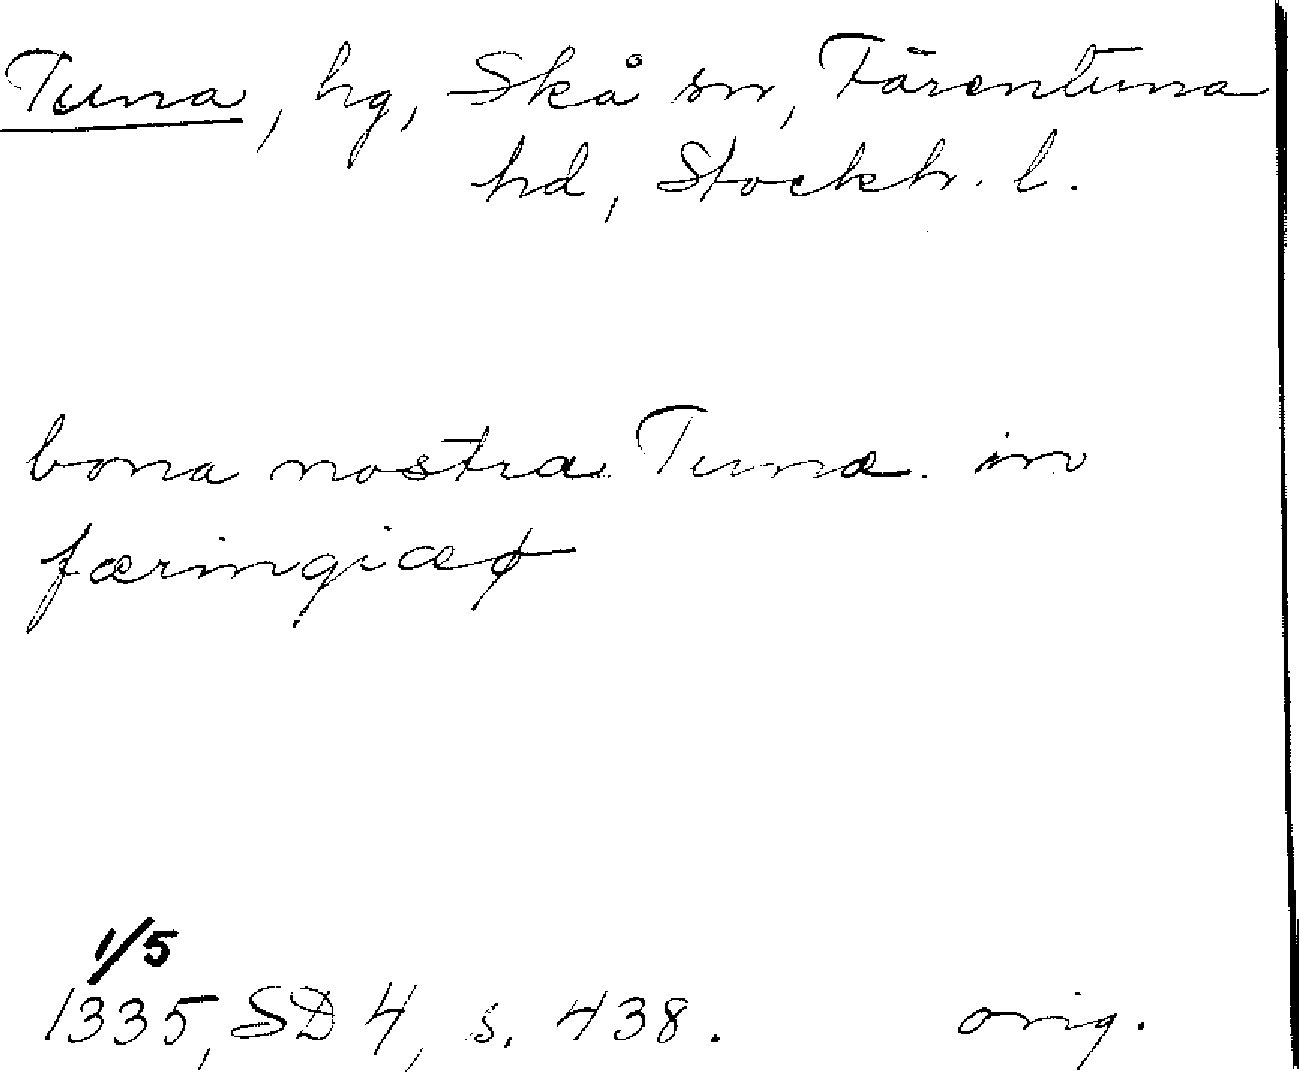 Tuna, hg, Skå sn, Färentuna
hd, Stockh. l.
bona nostra Tuna. in
færingiæø
1/5
1335, SD 4, s. 438. orig.